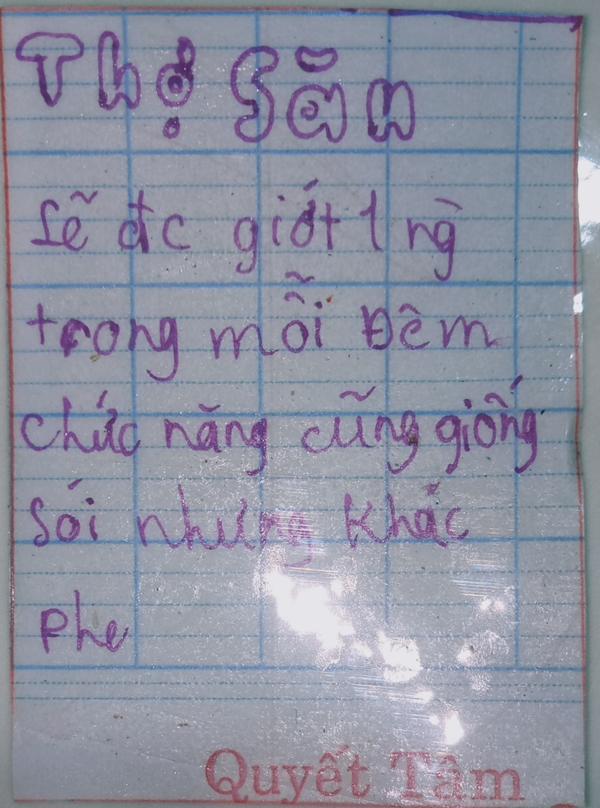 Thợ Săn
Sẽ đc giết 1 ng
trong mỗi Đêm
chức năng cũng giống
Sói nhưng khác
phe
Quyết Tâm